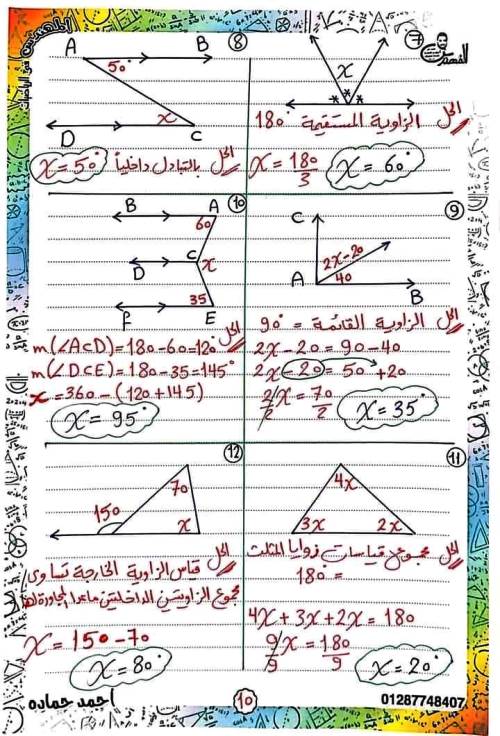 المهندس في الرياضيات
٧
x
الحل الزاوية المستقيمة 180°
x = 180/3 x = 60°
٨
A B
50°
x
D C
الحل بالتبادل داخلياً x = 50°
٩
C
2x-20
A 40
B
الحل الزاوية القائمة = 90°
2x - 20 = 90 - 40
2x - 20 = 50 + 20
2/2 x = 70/2 x = 35°
١٠
B A
60
D C x
35
F E
الحل
m(∠ACD) = 180 - 60 = 120°
m(∠DCE) = 180 - 35 = 145°
x = 360 - (120 + 145)
x = 95°
١١
4x
3x 2x
الحل مجموع قياسات زوايا المثلث
= 180°
4x + 3x + 2x = 180
9/9 x = 180/9 x = 20°
١٢
70
150 x
الحل قياس الزاوية الخارجة تساوى
مجموع الزاويتين الداخليتين ماعدا المجاورة لها
x = 150 - 70
x = 80°
أحمد حماده
١٠
01287748407